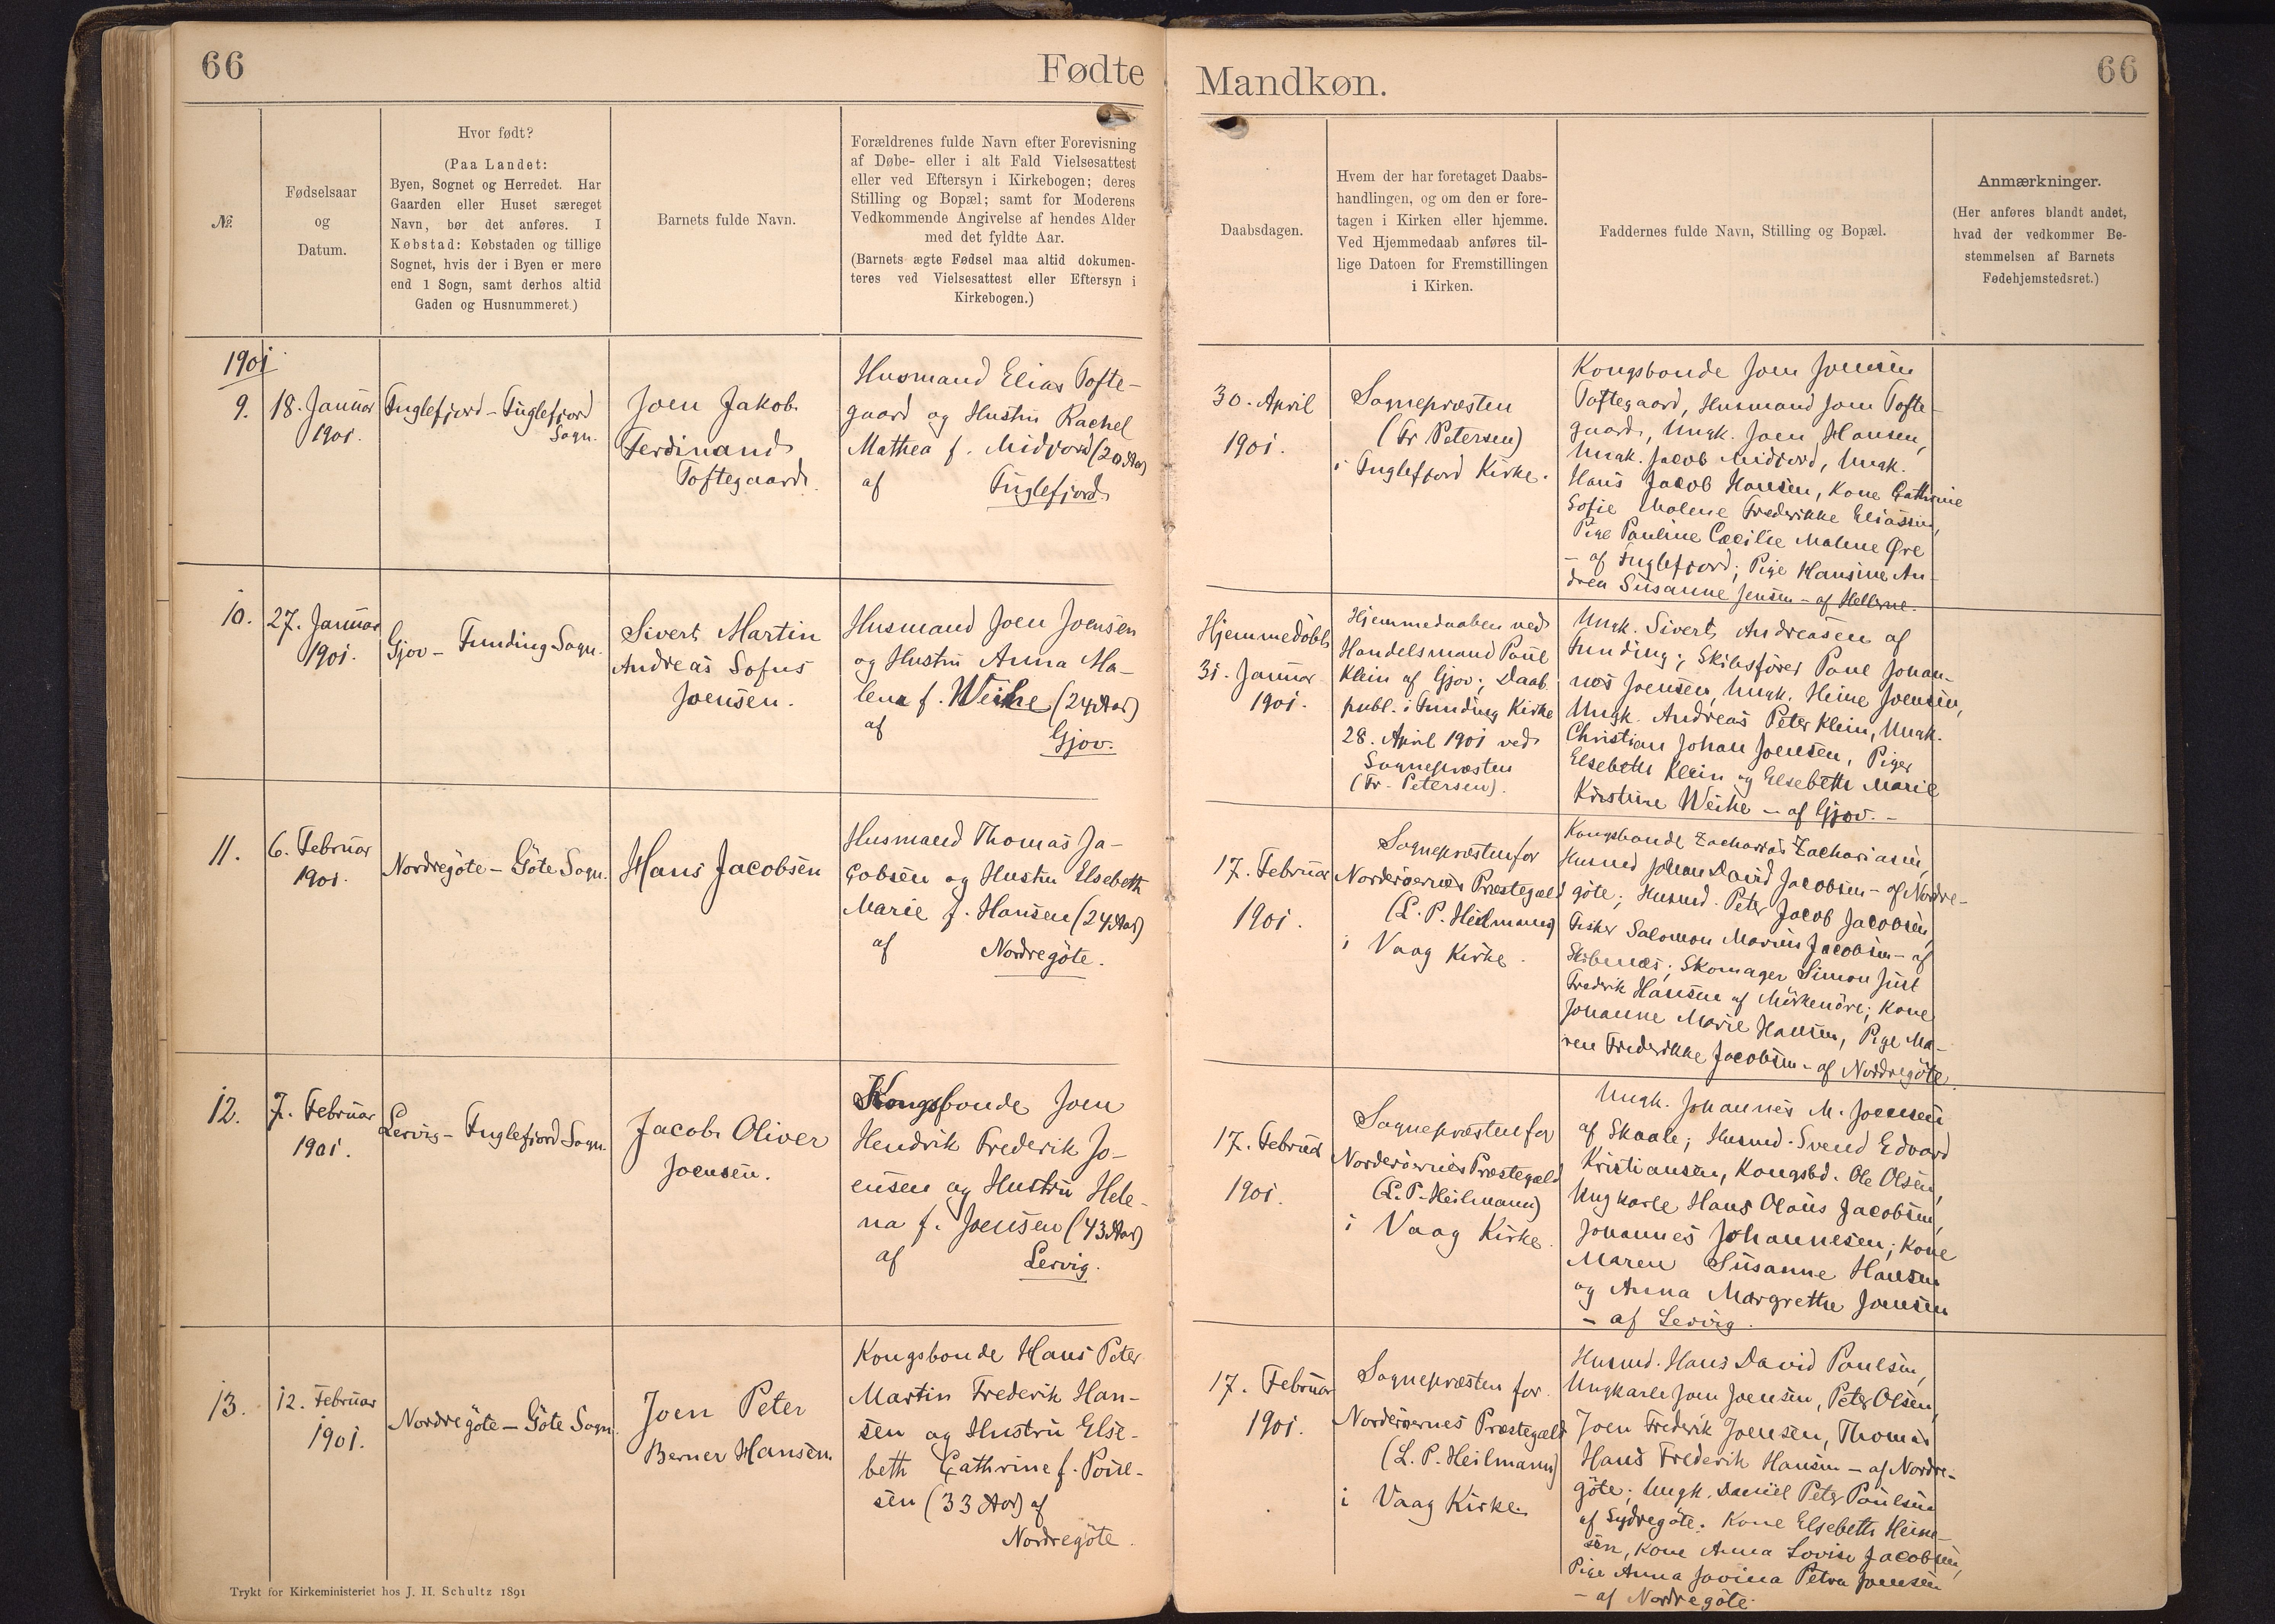 66
Fødte
Mandkøn.
66
№.
Fødselsaar
og
Datum.
Hvor født?
(Paa Landet:
Byen, Sognet og Herredet. Har
Gaarden eller Huset særeget
Navn, bør det anføres. I
Købstad: Købstaden og tillige
Sognet, hvis der i Byen er mere
end 1 Sogn, samt derhos altid
Gaden og Husnummeret.)
Barnets fulde Navn.
Forældrenes fulde Navn efter Forevisning
af Døbe- eller i alt Fald Vielsesattest
eller ved Eftersyn i Kirkebogen; deres
Stilling og Bopæl; samt for Moderens
Vedkommende Angivelse af hendes Alder
med det fyldte Aar.
(Barnets ægte Fødsel maa altid dokumen-
teres ved Vielsesattest eller Eftersyn i
Kirkebogen.)
Daabsdagen.
Hvem der har foretaget Daabs-
handlingen, og om den er fore-
tagen i Kirken eller hjemme.
Ved Hjemmedaab anføres til-
lige Datoen for Fremstillingen
i Kirken.
Faddernes fulde Navn, Stilling og Bopæl.
Anmærkninger.
(Her anføres blandt andet,
hvad der vedkommer Be-
stemmelsen af Barnets
Fødehjemstedsret.)
1901
9.
18. Januar
1901.
Fuglefjord - Fuglefjord
Sogn.
Joen Jakob
Ferdinand
Toftegaard.
Husmand Elias Tofte-
gaard og Hustru Rachel
Mathea f. Midjord (20 Aar)
af Fuglefjord
30. April
1901.
Sognepræsten
(Fr Petersen)
i Fuglefjord Kirke.
Kongsbonde Joen Joensen
Toftegaard, Husmand Joen Tofte-
gaard, Ungk. Joen Hansen,
Ungk. Jacob Midjord, Ungk.
Hans Jacob Hansen, Kone Cathrine
Sofie Malene Frederikke Eliassen,
Pige Pauline Cæcilie Malene Øre
- af Fuglefjord; Pige Hansine An-
drea Susanne Jensen - af Hellerne.
10.
27. Januar
1901.
Gjov - Funding Sogn.
Sivert Martin
Andreas Sofus
Joensen.
Husmand Joen Joensen
og Hustru Anna Ma-
lena f. Weihe (24 Aar)
af Gjov.
Hjemmedöbt
31. Januar
1901.
Hjemmedaaben ved
Handelsmand Poul
Klein af Gjov; Daab.
publ. i Funding Kirke
28. April 1901 ved
Sognepræsten
(Fr. Petersen).
Ungk. Sivert Andreasen af
Funding; Skibsfører Poul Johan-
nes Joensen, Ungk. Heine Joensen,
Ungk. Andreas Peter Klein, Ungk.
Christian Johan Joensen, Piger
Elsebeth Klein og Elsebeth Marie
Kristine Weihe - af Gjov. -
11.
6. Februar
1901.
Nordregöte - Göte Sogn.
Hans Jacobsen
Husmand Thomas Ja-
cobsen og Hustru Elsebeth
Marie f. Hansen (24 Aar)
af Nordregöte.
17. Februar
1901.
Sognepræsten for
Norderöernes Præstegæld
(L. P. Heilmann)
i Vaag Kirke.
Kongsbonde Zacharias Zachariasen,
Husmd Johan David Jacobsen - af Nordre-
göte; Husmd. Peter Jacob Jacobsen,
Fisker Salomon Marius Jacobsen - af
Skibenæs; Skomager Simon Just
Frederik Hansen af Mörkenöre; Kone
Johanne Marie Hansen, Pige Ma-
ren Frederikke Jacobsen - af Nordregöte.
12.
7. Februar
1901.
Lervig - Fuglefjord Sogn.
Jacob Oliver
Joensen.
Kongsbonde Joen
Hendrik Frederik Jo-
ensen og Hustru Hele-
na f. Joensen (43 Aar)
af Lervig.
17. Februar
1901.
Sognepræsten for
Norderöernes Præstegæld
(L. P. Heilmann)
i Vaag Kirke.
Ungk. Johannes M. Joensen
af Skaale; Husmd. Svend Edvard
Kristiansen, Kongsbd. Ole Olsen,
Ungkarle Hans Olaus Jacobsen,
Johannes Johannesen; Kone
Maren Susanne Hansen
og Anna Margrethe Joensen
- af Lervig.
13.
12. Februar
1901.
Nordregöte - Göte Sogn.
Joen Peter
Berner Hansen.
Kongsbonde Hans Peter
Martin Frederik Han-
sen og Hustru Else-
beth Cathrine f. Poul-
sen (33 Aar) af
Nordregöte.
17. Februar
1901.
Sognepræsten for
Norderöernes Præstegæld
(L. P. Heilmann)
i Vaag Kirke.
Husmd. Hans David Poulsen,
Ungkarle Joen Joensen, Peter Olsen,
Joen Frederik Joensen, Thomas
Hans Frederik Hansen - af Nordre-
göte; Ungk. Daniel Peter Poulsen
af Sydregöte. Kone Elsebeth Heine-
sen, Kone Anna Lovise Jacobsen,
Pige Anna Jovina Petra Joensen
- af Nordregöte.
Trykt for Kirkeministeriet hos J. H. Schultz 1891